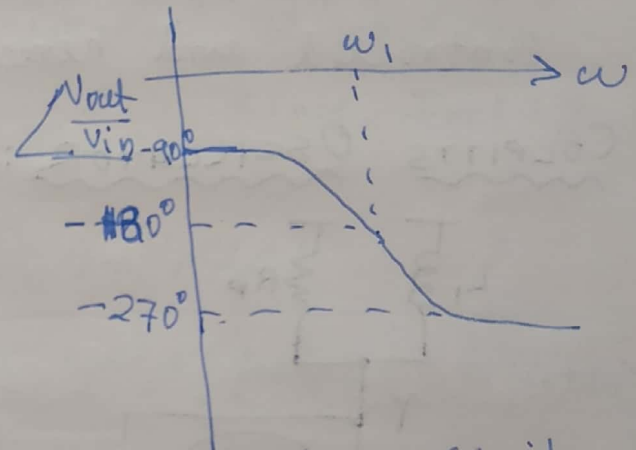 ω₁
ω
∠Vout
Vin
-90°
-180°
-270°